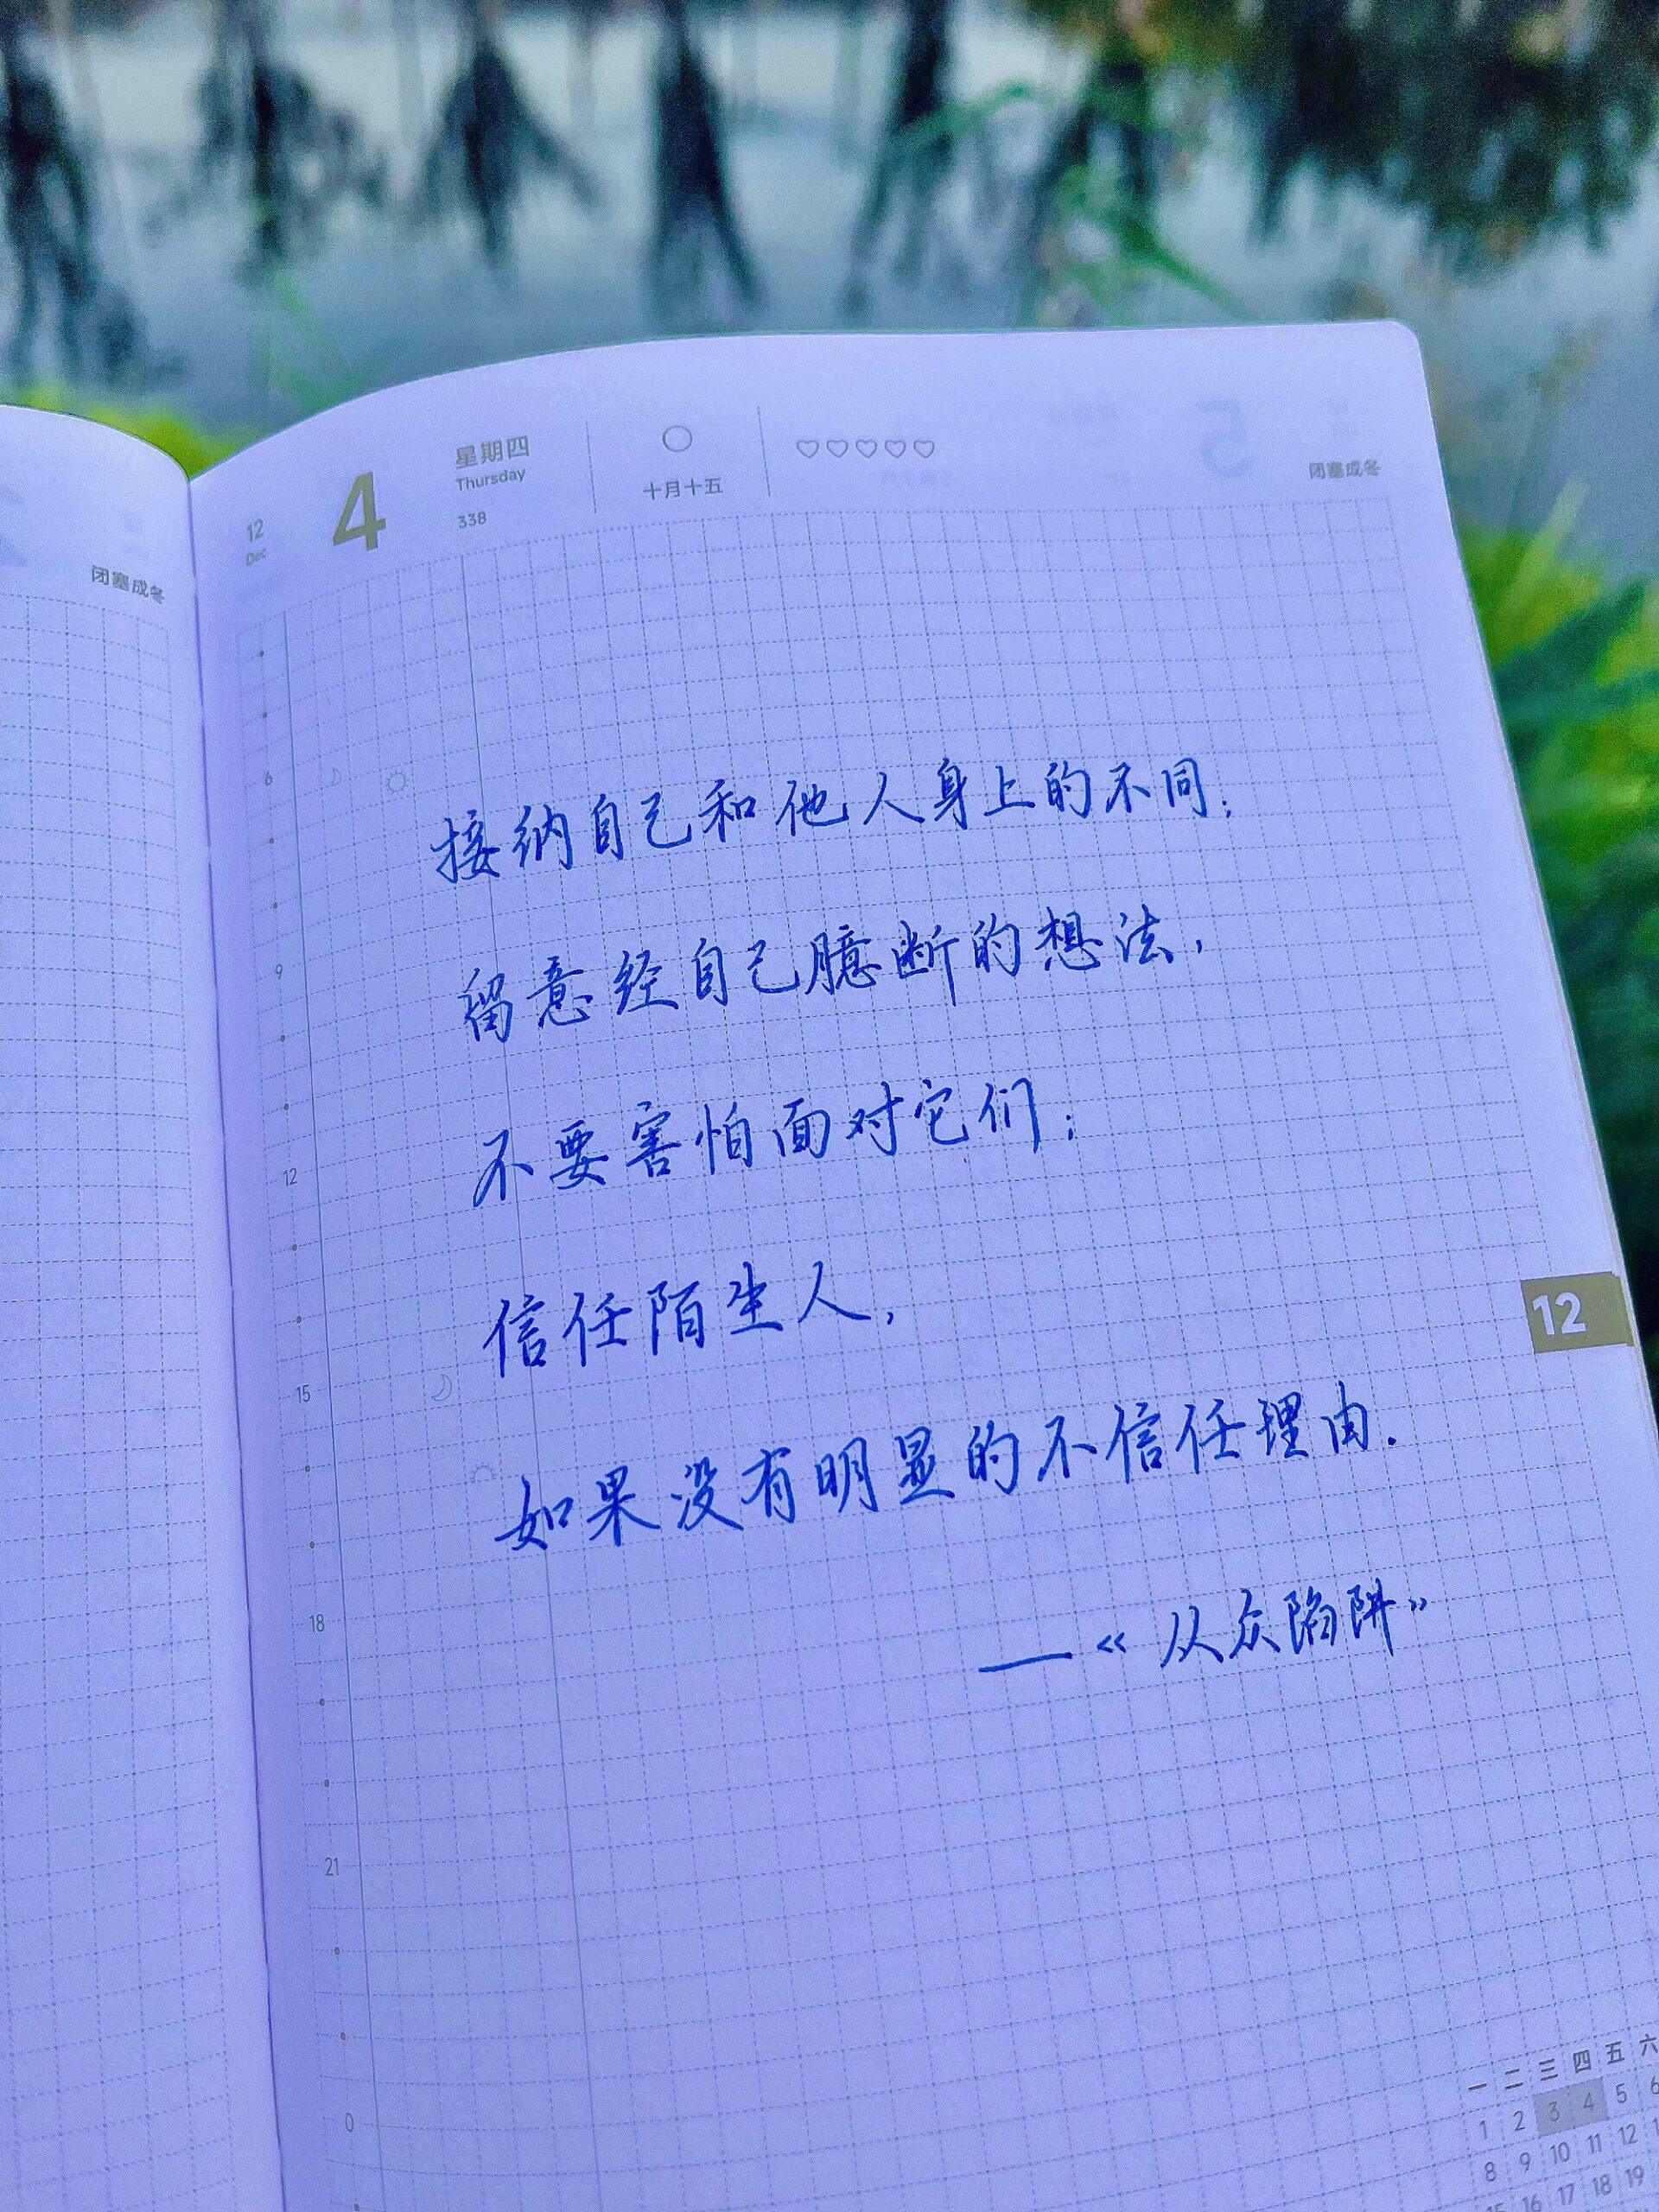 闭塞成冬
12
Dec
4
星期四
Thursday
338
十月十五
闭塞成冬
6
接纳自己和他人身上的不同；
9
留意经自己臆断的想法，
12
不要害怕面对它们；
信任陌生人，
12
15
如果没有明显的不信任理由.
18
——《从众陷阱》
21
0
一 二 三 四 五 六
1 2 3 4 5 6
8 9 10 11 12
15 16 17 18 19